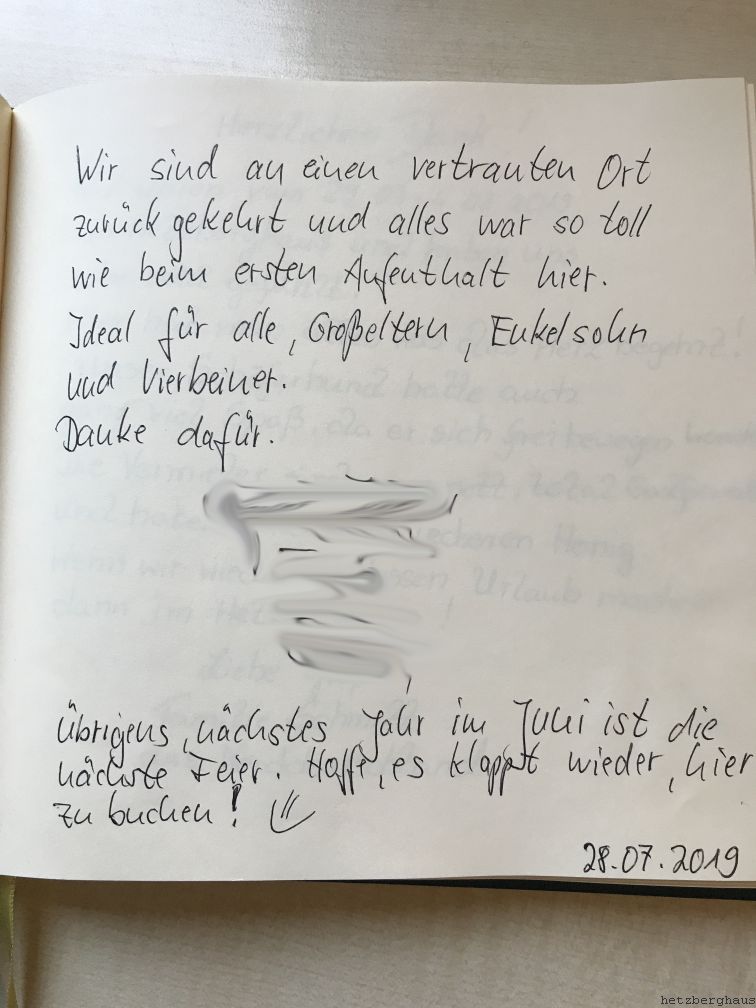 Wir sind an einen vertrauten Ort
zurückgekehrt und alles war so toll
wie beim ersten Aufenthalt hier.
Ideal für alle, Großeltern, Enkelsohn
und Vierbeiner.
Danke dafür.
Übrigens, nächstes Jahr im Juni ist die
nächste Feier. Hoffe, es klappt wieder, hier
zu buchen!
28.07.2019
hetzberghaus